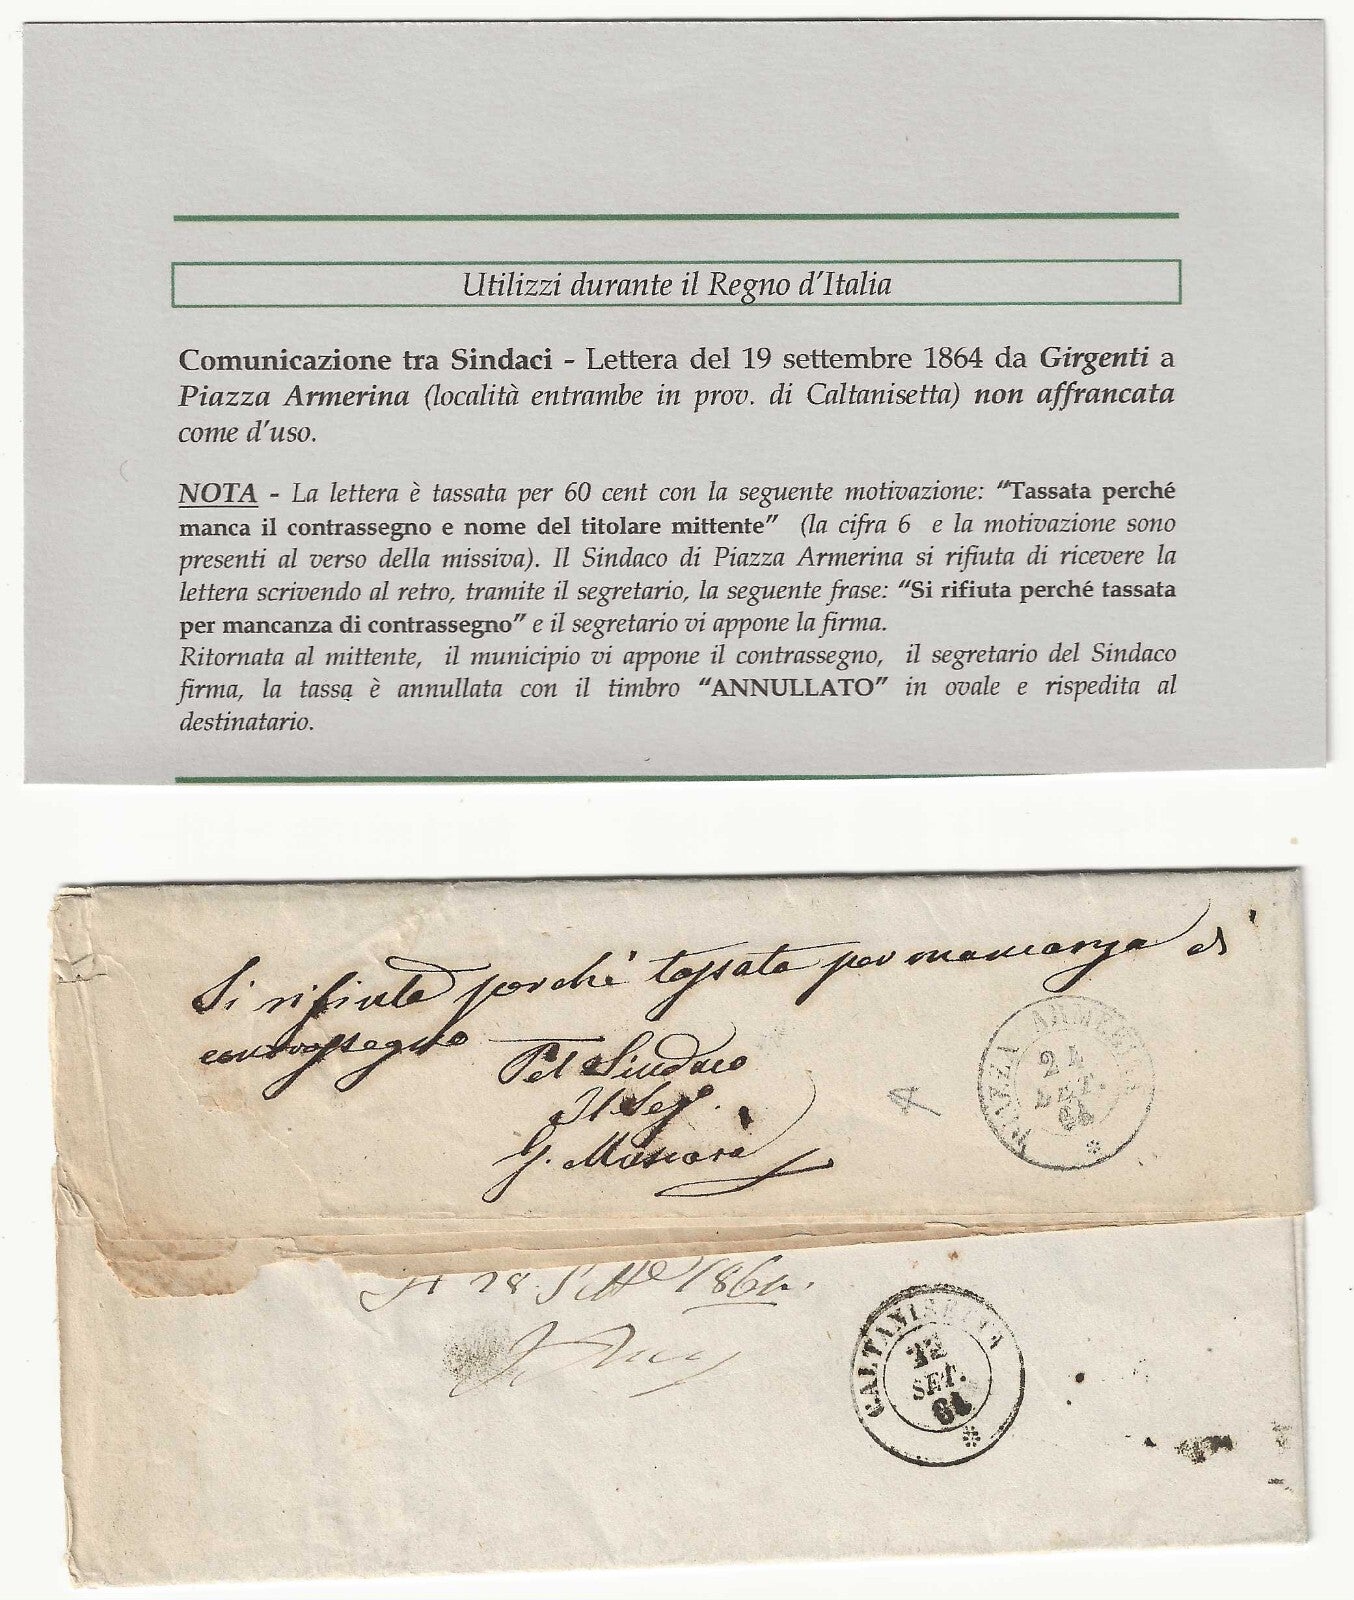 Utilizzi durante il Regno d'Italia
Comunicazione tra Sindaci - Lettera del 19 settembre 1864 da Girgenti a
Piazza Armerina (località entrambe in prov. di Caltanisetta) non affrancata
come d'uso.
NOTA - La lettera è tassata per 60 cent con la seguente motivazione: "Tassata perché
manca il contrassegno e nome del titolare mittente" (la cifra 6 e la motivazione sono
presenti al verso della missiva). Il Sindaco di Piazza Armerina si rifiuta di ricevere la
lettera scrivendo al retro, tramite il segretario, la seguente frase: "Si rifiuta perché tassata
per mancanza di contrassegno" e il segretario vi appone la firma.
Ritornata al mittente, il municipio vi appone il contrassegno, il segretario del Sindaco
firma, la tassa è annullata con il timbro "ANNULLATO" in ovale e rispedita al
destinatario.
Si rifiuta perché tassata per mancanza di
contrassegno
Pel Sindaco
Il Seg°.
G. Mascarà
PIAZZA ARMERINA
24
SET.
64
28 Sett.e 1864.
CALTANISETTA
22
SET.
64